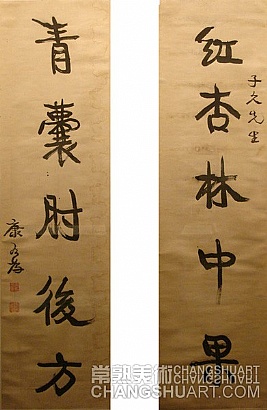 红杏林中果
子久先生
青囊肘後方
康有為
常熟美術 CHANGSHUART
CHANGSHUART